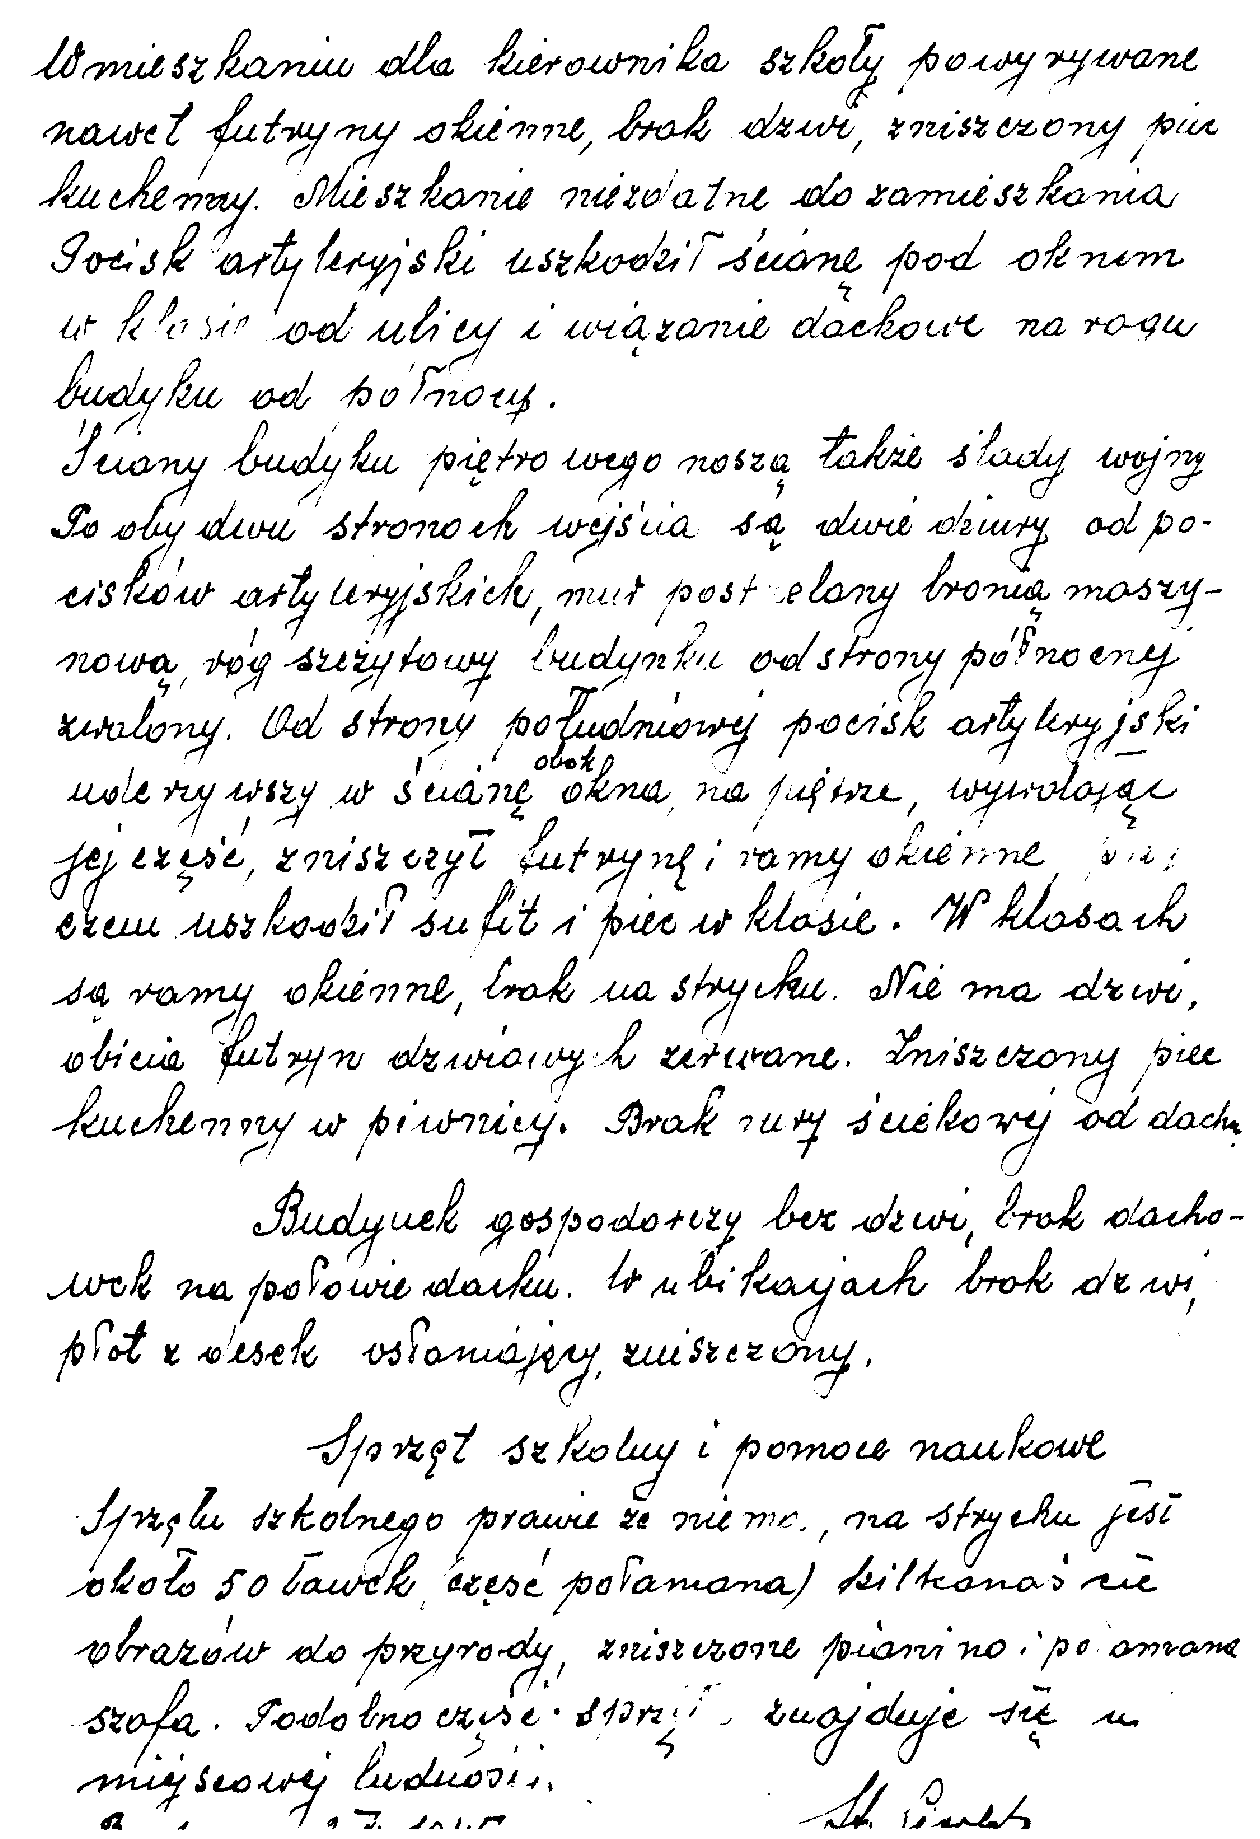 W mieszkaniu dla kierownika szkoły powyrywane
nawet futryny okienne, brak dzwi, zniszczony piec
kuchenny. Mieszkanie niezdatne do zamieszkania
Pocisk artyleryjski uszkodził ścianę pod oknem
w klasie od ulicy i wiązanie dachowe na rogu
budyku od północy.
Ściany budyku piętrowego noszą także ślady wojny
Po obydwu stronach wejścia są dwie dziury od po-
cisków artyleryjskich, mur postrzelany bronią maszy-
nową, róg szczytowy budynku od strony północnej
zwalony. Od strony południowej pocisk artyleryjski
uderzywszy w ścianę obok okna, na piętrze, wywalając
jej część, zniszczył futrynę i ramy okienne przy
czem uszkodził sufit i piec w klasie. W klasach
są ramy okienne, brak na strychu. Nie ma dzwi,
obicia futryn dzwiowych zerwane. Zniszczony piec
kuchenny w piwnicy. Brak rury ściekowej od dachu
Budynek gospodarczy bez dzwi, brak dacho-
wek na połowie dachu. W ubikacjach brak dzwi,
płot z desek osłaniający, zniszczony.
Sprzęt szkolny i pomoce naukowe
Sprzętu szkolnego prawie że niema, na strychu jest
około 50 ławek, część połamana) kilkanaście
obrazów do przyrody, zniszczone pianino i połamana
szafa. Podobno część sprzęt. znajduje się u
miejscowej ludności.
St.